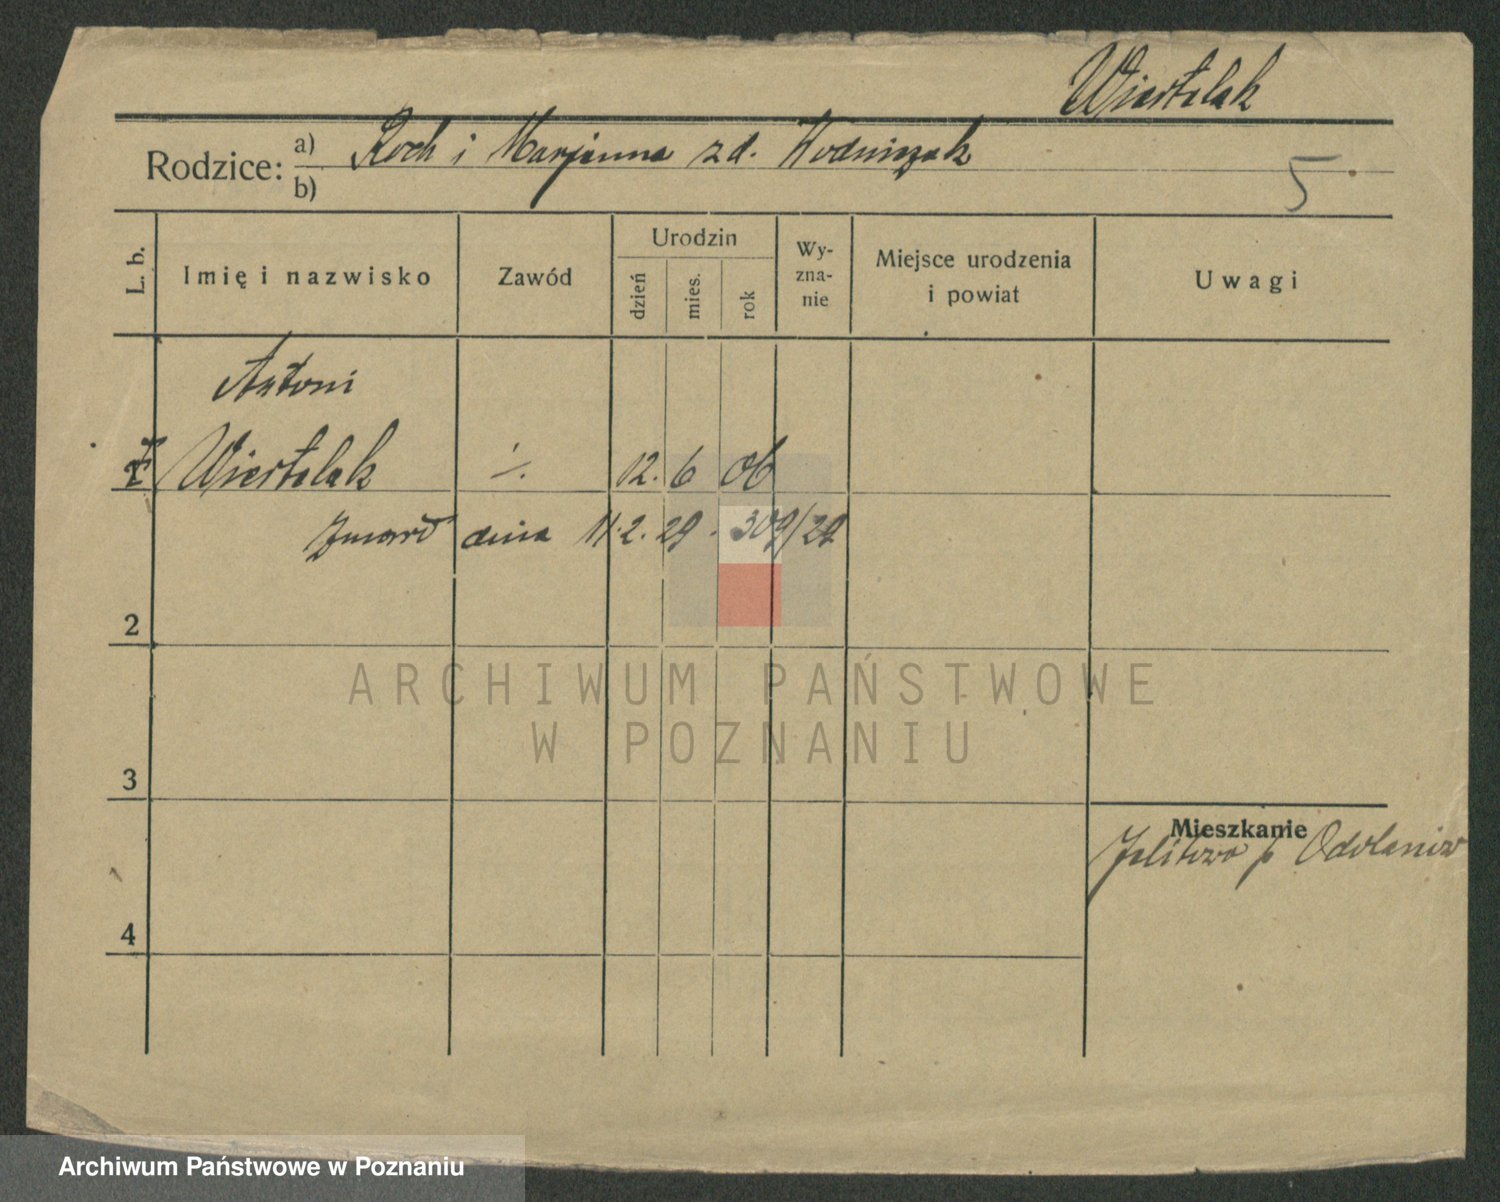 Wiertelak
Rodzice: a) Roch i Marjanna zd. Wodniczak
b)
5
L. b.
Imię i nazwisko
Zawód
Urodzin
dzień
mies.
rok
Wy-
zna-
nie
Miejsce urodzenia
i powiat
Uwagi
Antoni
Wiertelak ·/. 12. 6 06
Zmarł dnia 11.2.29. 309/29
2
ARCHIWUM PAŃSTWOWE
W POZNANIU
3
Mieszkanie
p Odolanów
4
Archiwum Państwowe w Poznaniu